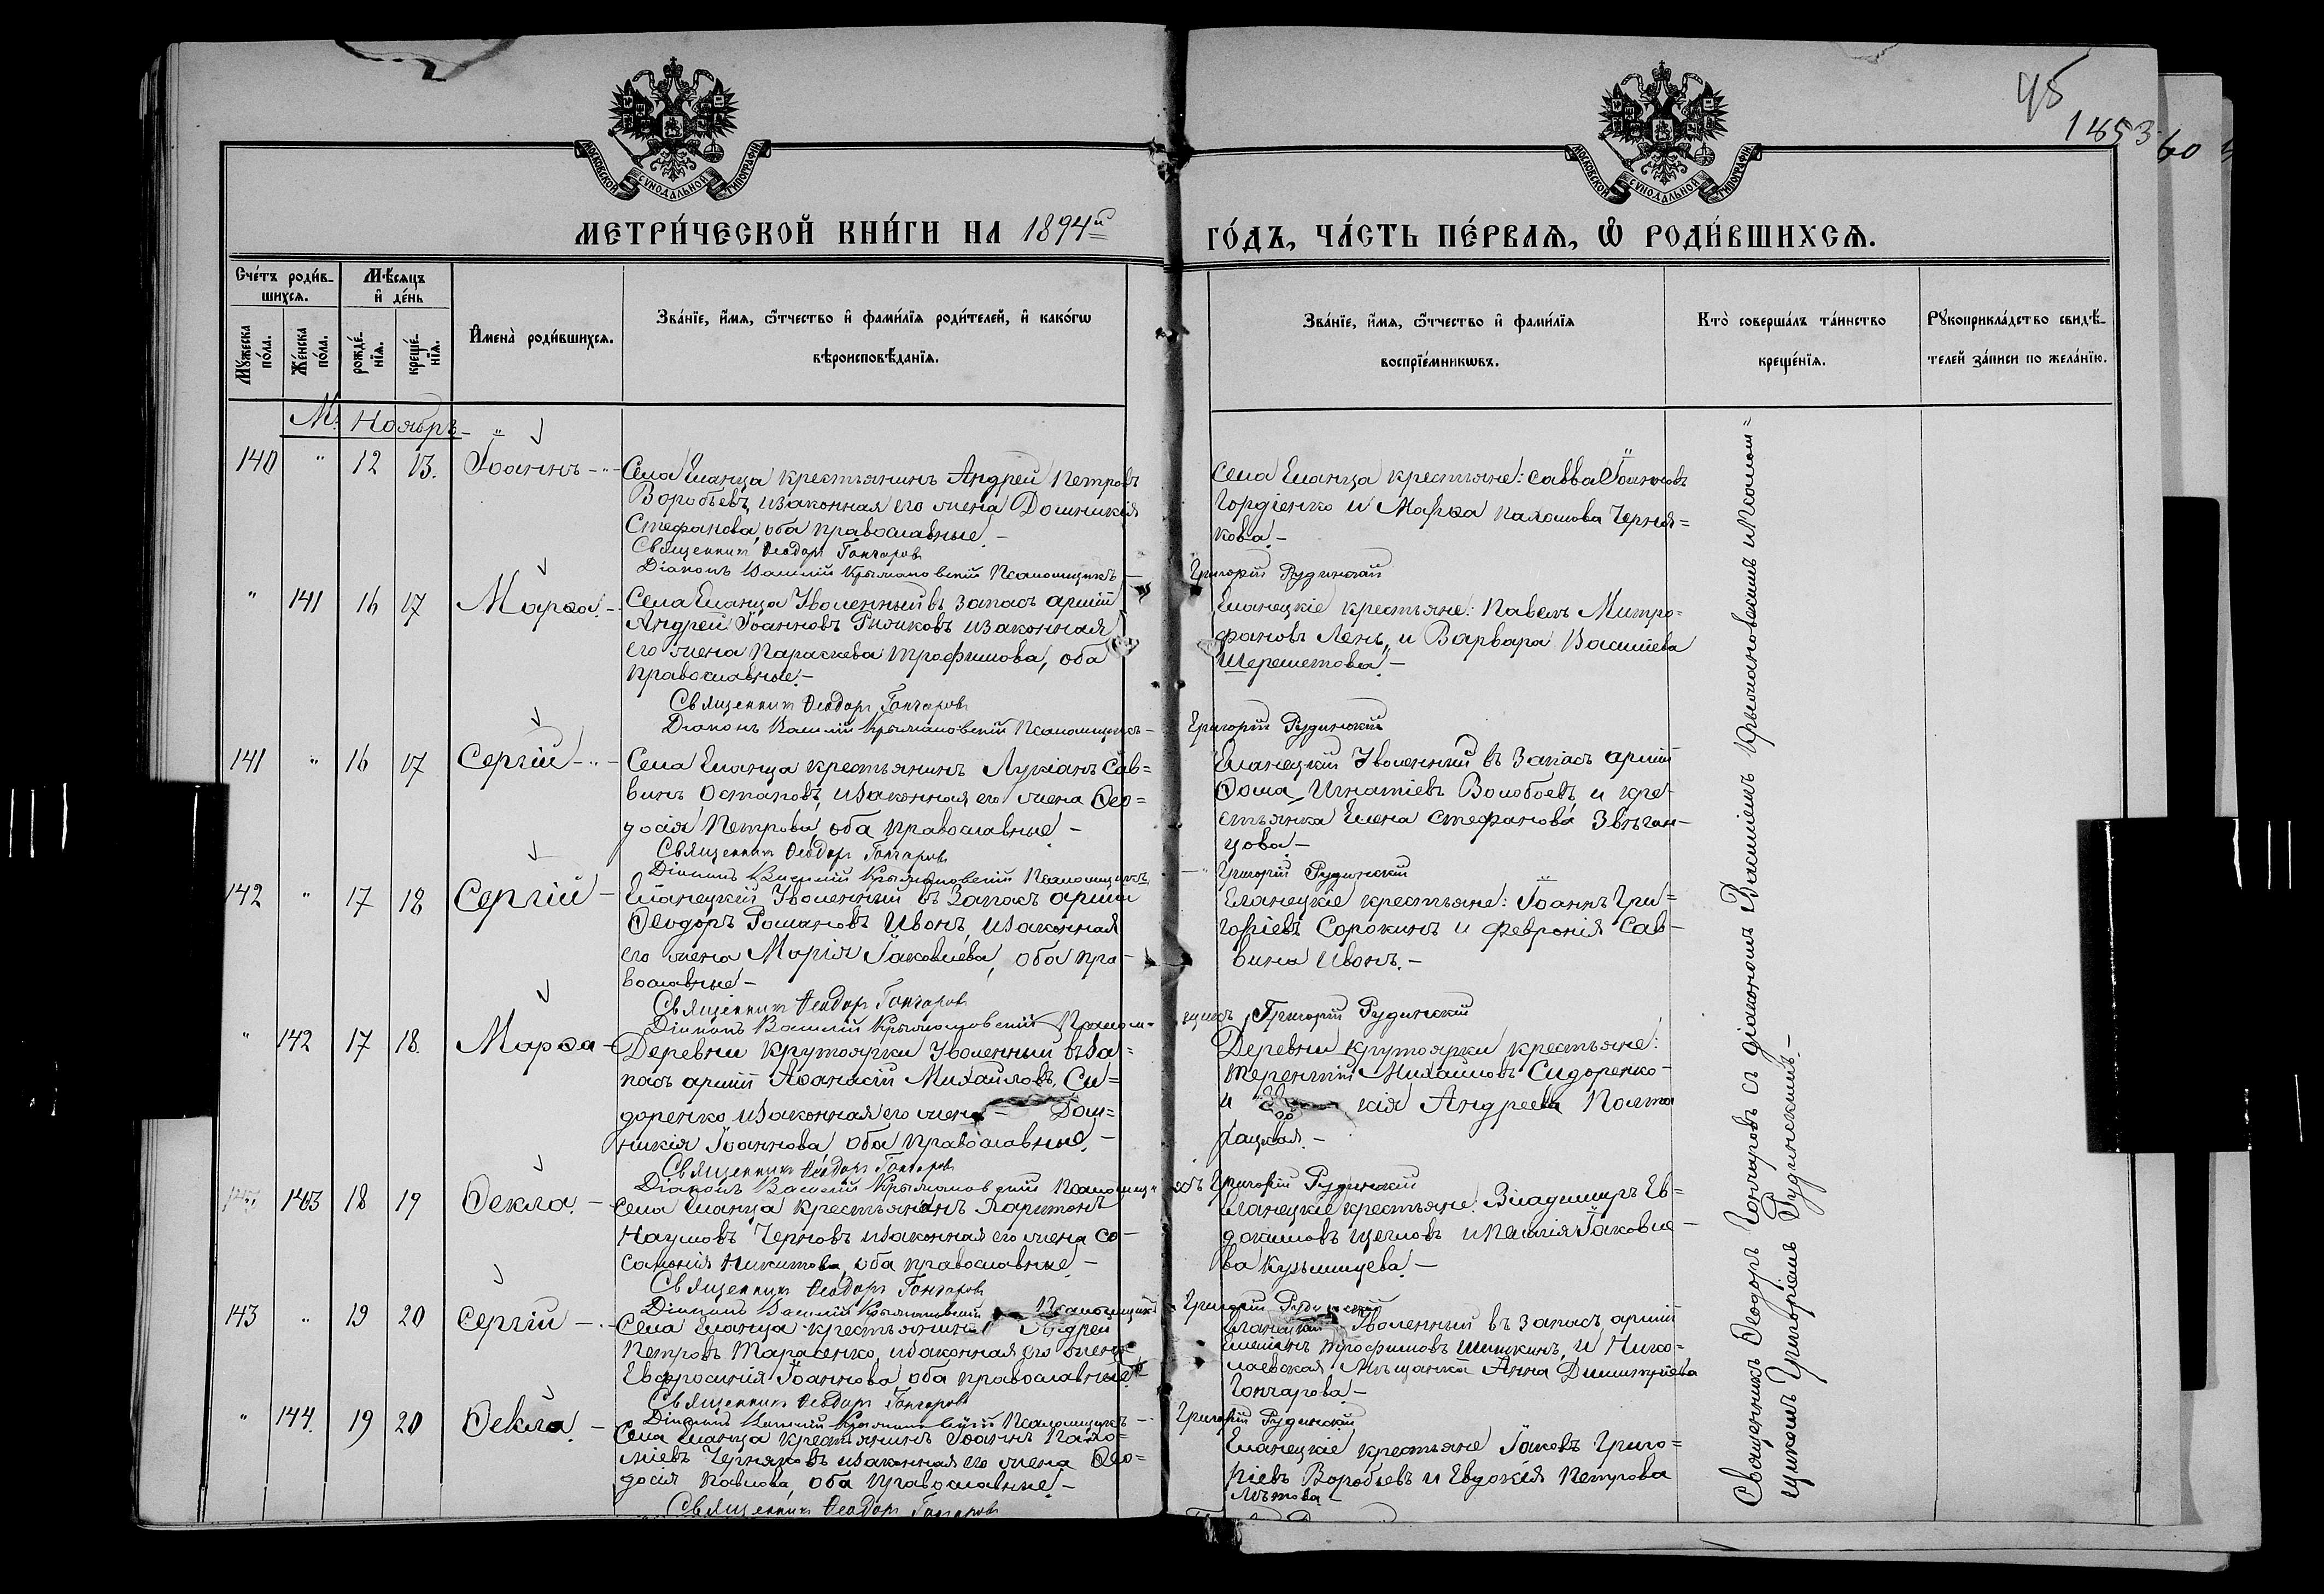 95
1853
60
МОСКОВСКОЙ СѴНОДАЛЬНОЙ ТИПОГРАФІИ
МОСКОВСКОЙ СѴНОДАЛЬНОЙ ТИПОГРАФІИ
МЕТРИ́ЧЕСКОЙ КНИ́ГИ НА 1894й
ГО́ДЪ, ЧА́СТЬ ПЕ́РВАѦ, Ѽ РОДИ́ВШИХСѦ.
Сче́тъ роди́в-
шихсѧ.
Мѣ́сѧцъ
и҆ де́нь
Мꙋ́жеска
по́ла.
Же́нска
по́ла.
рожде́-
нїѧ.
креще́-
нїѧ.
И҆мена̀ роди́вшихсѧ.
Зва́нїе, и҆́мѧ, ѻ҆́тчество и҆ фами́лїѧ роди́телей, и҆ како́гѡ
вѣроисповѣ́данїѧ.
Зва́нїе, и҆́мѧ, ѻ҆́тчество и҆ фами́лїѧ
воспрїе́мникѡвъ.
Кто̀ соверша́лъ та́инство
креще́нїѧ.
Рꙋкоприкла́дство свидѣ́-
телей за́писи по жела́нїю.
М. Ноябрь
140 " 12 13. Іоаннъ
Села Еланца крестьянинъ Андрей Петровъ
Воробьевъ, изаконная его жена Домникія
Стефанова, оба православные. -
Священникъ Ѳеодоръ Гончаровъ
Діаконъ Василій Крыжановскій Псаломщикъ -
Села Еланца крестьяне: Савва Іоанновъ
Гордіенко и Марѳа Пахомова Черня=
кова. -
Григорій Рудинскій
" 141 16 17 Марѳа. -
Села Еланца Уволенный въ запасъ арміи
Андрей Іоанновъ изаконная
его жена Параскева Трофимова, оба
православные. -
Священникъ Ѳеодоръ Гончаровъ
Діаконъ Василій Крыжановскій Псаломщикъ -
Еланецкіе крестьяне: Павелъ Митро=
фановъ Лень, и Варвара Васильева
Шереметова. -
Григорій Рудинскій
141 " 16 17 Сергій -
Села Еланца крестьянинъ Лукіанъ Сав=
винъ Остаповъ, изаконная его жена Ѳео=
досія Петрова, оба православные. -
Священникъ Ѳеодоръ Гончаровъ
Діаконъ Василій Крыжановскій Псаломщикъ
Еланецкій Уволенный въ запасъ арміи
Ѳома Игнатіевъ Волобоевъ и кре=
стьянка Елена Стефанова
цова. -
Григорій Рудинскій
142 " 17 18 Сергій -
Еланецкій Уволенный въ Запасъ арміи
Ѳеодоръ Романовъ Ивонъ, изаконная
его жена Марія Іаковлева, оба пра-
вославные -
Священникъ Ѳеодоръ Гончаровъ
Діаконъ Василій Крыжановскій Псалом-
Еланецкіе крестьяне: Іоаннъ Гри=
горіевъ Сорокинъ и Февронія Сав-
вина Ивонъ. -
щикъ Григорій Рудинскій
" 142 17 18. Марѳа -
Деревни Крутоярки Уволенный въ за=
пасъ арміи Аѳанасій Михайловъ Си=
доренко, изаконная его жена - Дом=
никія Іоаннова, оба православные. -
Священникъ Ѳеодоръ Гончаровъ
Діаконъ Василій Крыжановскій Псаломщи-
Деревни Крутоярки крестьяне:
Терентій Михайловъ Сидоренко -
и кія Андреева Полта
рацкая. -
къ Григорій Рудинскій
143 18 19 Ѳекла. -
Села Еланца крестьянинъ Харитонъ
Наумовъ Черновъ изаконная его жена Со-
саломія Никитова, оба православные. -
Священникъ Ѳеодоръ Гончаровъ
Діаконъ Василій Крыжановскій Псаломщикъ
Еланецкіе крестьяне: Владимиръ Ев=
докимовъ Щегловъ и Іаковле-
ва Кузьмицева. -
Григорій Рудинскій
143 " 19 20 Сергій -
Села Еланца крестьянинъ Андрей
Петровъ Тарасенко, изаконная его жена
Евфросинія Іоаннова оба православные. -
Священникъ Ѳеодоръ Гончаровъ
Діаконъ Василій Крыжановскій Псаломщикъ -
Еланецкій Уволенный въ запасъ арміи
Трофимовъ Шишкинъ, и Нико=
лаевская Мѣщанка Анна Димитріева
Гончарова -
Григорій Рудинскій
" 144. 19 20 Ѳекла. -
Села Еланца крестьянинъ Іоаннъ Пахо=
міевъ Черняковъ изаконная его жена Ѳео=
досія Павлова, оба православные. -
Священникъ Ѳеодоръ Гончаровъ
Еланецкіе крестьяне Іаковъ Григо=
ріевъ Воробьевъ и Евдокія Петрова
Священникъ Ѳеодоръ Гончаровъ съ діакономъ Василіемъ Крыжановскимъ и Псалом=
щикомъ Григоріемъ Рудинскимъ. -